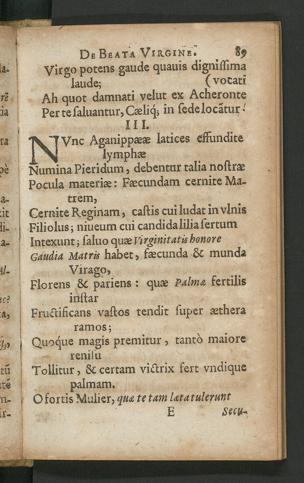 DE BEATA VIRGINE. 89
Virgo potens gaude quauis dignissima
laude; (vocati
Ah quot damnati velut ex Acheronte
Per te saluantur, Cæliq; in sede locãtur!
III.
NVnc Aganippææ latices effundite
lymphæ
Numina Pieridum, debentur talia nostræ
Pocula materiæ: Fæcundam cernite Ma-
trem,
Cernite Reginam, castis cui ludat in vlnis
Filiolus; niueum cui candida lilia sertum
Intexunt; saluo quæ Virginitatis honore
Gaudia Matris habet, fæcunda & munda
Virago,
Florens & pariens: quæ Palmæ fertilis
instar
Fructificans vastos tendit super æthera
ramos;
Quoque magis premitur, tantò maiore
renisu
Tollitur, & certam victrix fert vndique
palmam.
O fortis Mulier, quæ te tam læta tulerunt
E Secu-